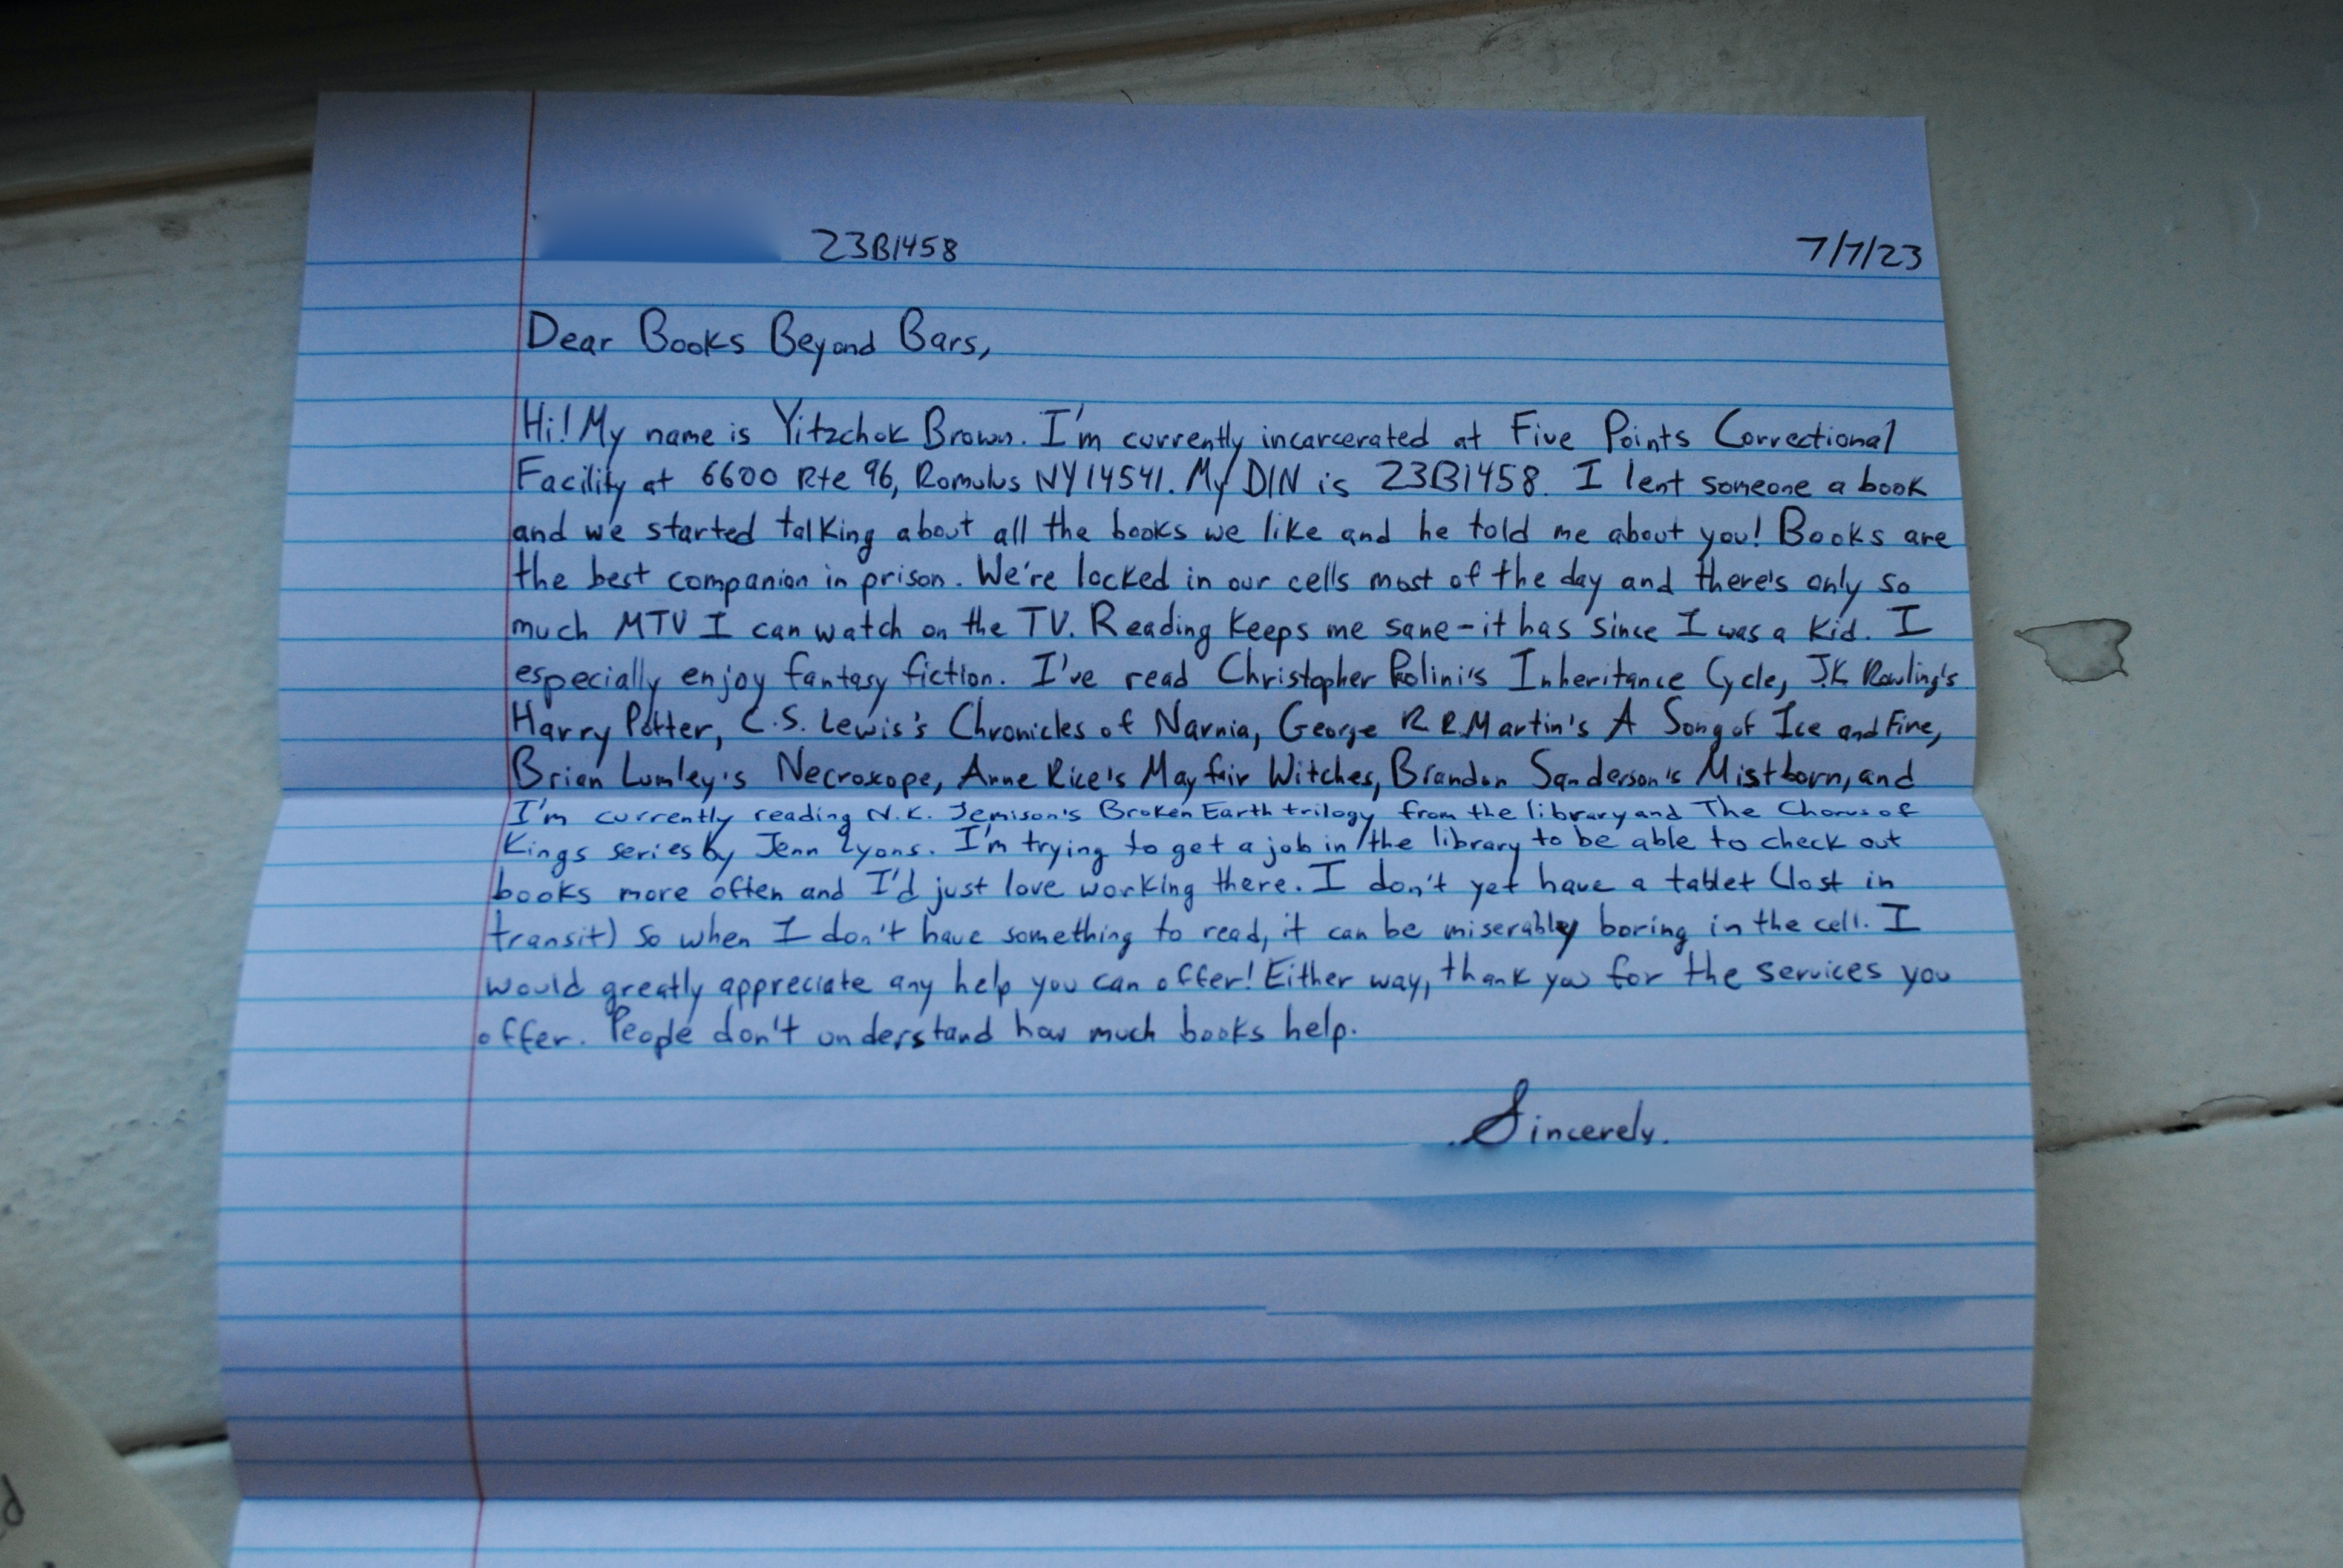 23B1458 7/7/23
Dear Books Beyond Bars,
Hi! My name is Yitzchok Brown. I'm currently incarcerated at Five Points Correctional
Facility at 6600 Rte 96, Romulus NY 14541. My DIN is 23B1458. I lent someone a book
and we started talking about all the books we like and he told me about you! Books are
the best companion in prison. We're locked in our cells most of the day and there's only so
much MTV I can watch on the TV. Reading keeps me sane-it has since I was a kid. I
especially enjoy fantasy fiction. I've read Christopher Polini's Inheritance Cycle, J.K. Rowling's
Harry Potter, C.S. Lewis's Chronicles of Narnia, George R R Martin's A Song of Ice and Fire,
Brian Lumley's Necroscope, Anne Rice's Mayfair Witches, Brandon Sanderson's Mistborn, and
I'm currently reading N.K. Jemison's Broken Earth trilogy from the library and The Chorus of
Kings series by Jenn Lyons. I'm trying to get a job in the library to be able to check out
books more often and I'd just love working there. I don't yet have a tablet (lost in
transit) so when I don't have something to read, it can be miserably boring in the cell. I
would greatly appreciate any help you can offer! Either way, thank you for the services you
offer. People don't understand how much books help.
Sincerely.